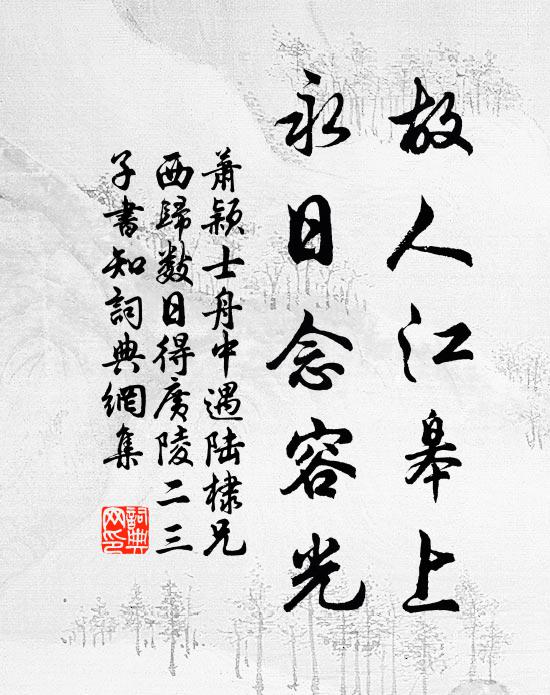 故人江皋上
永日念容光
萧颖士舟中遇陆棣兄
西歸数日得廣陵二三
子書知詞典網集
詞典网印